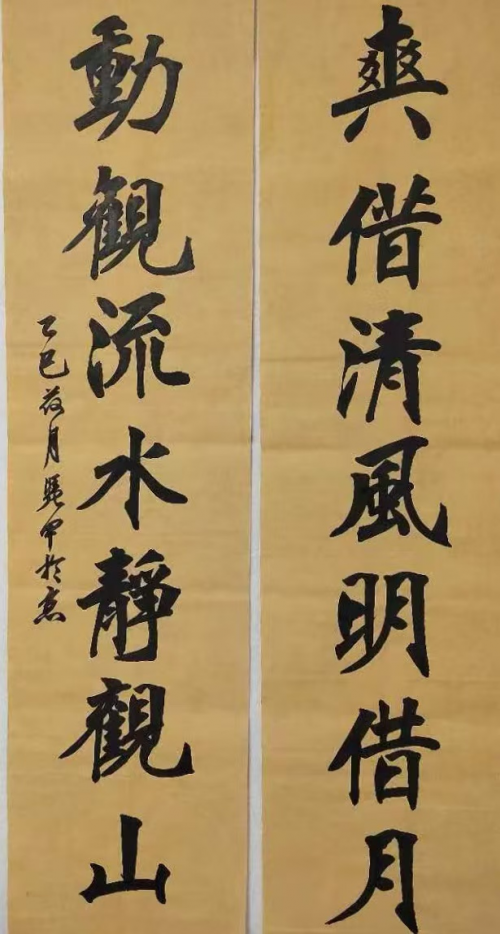 爽借清風明借月
動觀流水靜觀山
乙巳荷月於京